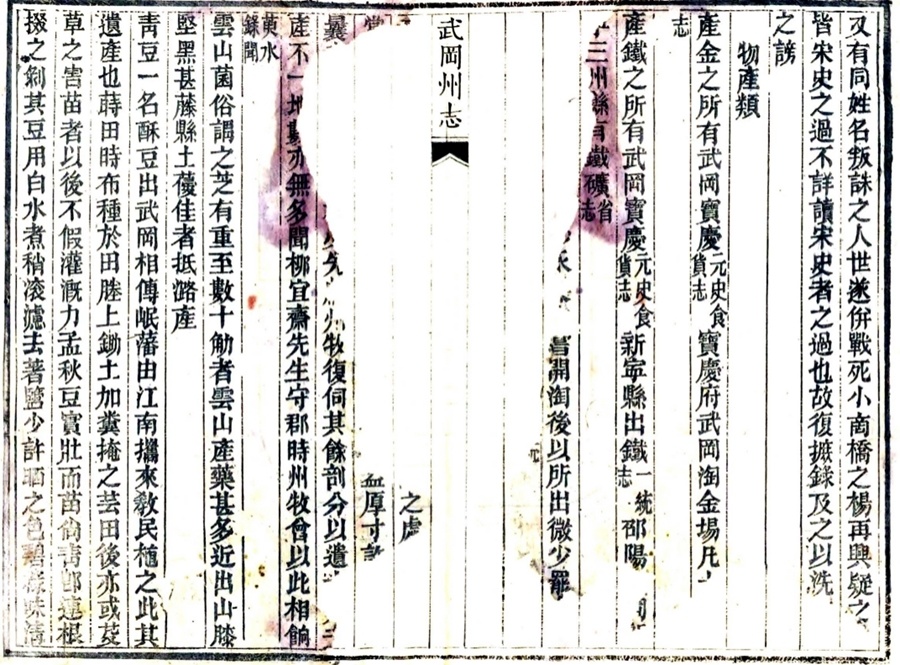 又有同姓名叛誅之人世遂併戰死小商橋之楊再興疑之
皆宋史之過不詳讀宋史者之過也故復摭錄及之以洗
之謗
物產類
產金之所有武岡寶慶元史食貨志寶慶府武岡淘金場凡
志
產鐵之所有武岡寶慶元史食貨志新寧縣出鐵一統志邵陽
三州縣有鐵礦省志
開淘後以所出微少罷
武岡州志
之處
血厚寸許
州牧復伺其餘剖分以遺
產不一地數亦無多聞柳宜齋先生守郡時州牧曾以此相餉
黃水錄聞
雲山菌俗謂之芝有重至數十觔者雲山產藥甚多近出山膝
堅黑甚藤縣土蔓佳者抵潞產
青豆一名酥豆出武岡相傳岷藩由江南攜來教民植之此其
遺產也蒔田時布種於田塍上鋤土加糞掩之芸田後亦或芟
草之害苗者以後不假灌溉力孟秋豆實壯而苗尚青郎連根
掇之剝其豆用白水煮稍滾濾去著鹽少許晒之色碧樣味清